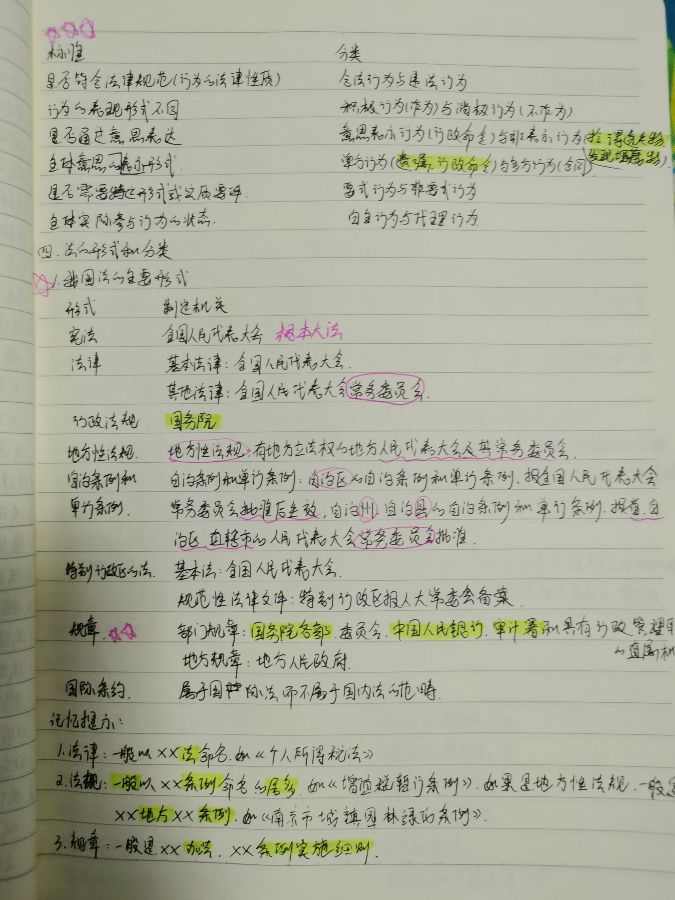 标准 分类
是否符合法律规范(行为的法律性质) 合法行为与违法行为
行为的表现形式不同 积极行为(作为)与消极行为(不作为)
是否通过意思表达 意思表示行为(行政命令)与非表示行为(拾得遗失物
发现埋藏物)
主体意思的表示形式. 单方行为(遗嘱.行政命令)与多方行为(合同).
是否需要特定形式或实质要件 要式行为与非要式行为
主体实际参与行为的状态. 自主行为与代理行为.
四.法的形式和分类
1.我国法的主要形式
形式 制定机关
宪法 全国人民代表大会 根本大法
法律 基本法律:全国人民代表大会.
其他法律:全国人民代表大会常务委员会.
行政法规 国务院
地方性法规. 地方性法规:有地方立法权的地方人民代表大会及其常务委员会.
自治条例和 自治条例和单行条例:自治区的自治条例和单行条例.报全国人民代表大会
单行条例. 常务委员会批准后生效,自治州,自治县的自治条例和单行条例.报省,自
治区 直辖市的人民代表大会常务委员会批准.
特别行政区的法. 基本法:全国人民代表大会.
规范性法律文件:特别行政区报人大常委会备案.
规章. 部门规章:国务院各部 委员会.中国人民银行.审计署和具有行政管理职
的直属机
地方规章:地方人民政府.
国际条约. 属于国际法而不属于国内法的范畴.
记忆提示:
1.法律:一般以××法命名.如《个人所得税法》
2.法规:一般以××条例命名的居多.如《增值税暂行条例》.如果是地方性法规.一般是
××地方××条例.如《南京市城镇园林绿化条例》.
3.规章:一般是××办法.××条例实施细则.